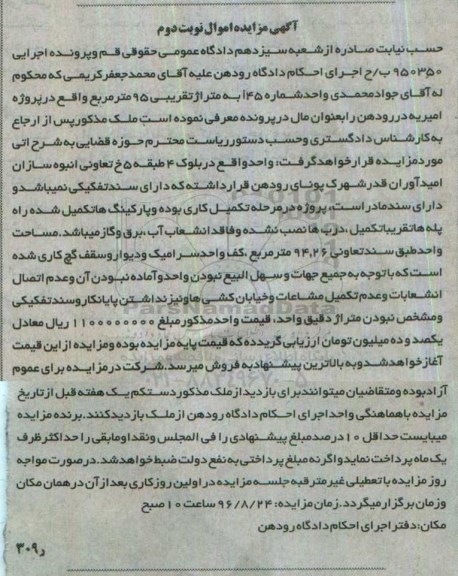 آگهی مزایده اموال نوبت دوم
حسب نیابت صادره از شعبه سیزدهم دادگاه عمومی حقوقی قم و پرونده اجرایی
۹۵۰۳۵۰ ب/ح اجرای احکام دادگاه رودهن علیه آقای محمدجعفر کریمی که محکوم
له آقای جواد محمدی واحد شماره ۴۵ا به متراژ تقریبی ۹۵ متر مربع واقع در پروژه
امیریه در رودهن را بعنوان مال در پرونده معرفی نموده است ملک مذکور پس از ارجاع
به کارشناس دادگستری و حسب دستور ریاست محترم حوزه قضایی به شرح اتی
مورد مزایده قرار خواهد گرفت: واحد واقع در بلوک ۴ طبقه ۵ خ تعاونی انبوه سازان
امید آوران قدر شهرک پونای رودهن قرار داشته که دارای سند تفکیکی نمیباشد و
دارای سند مادر است، پروژه در مرحله تکمیل کاری بوده و پارکینگ ها تکمیل شده راه
پله ها تقریبا تکمیل، درب ها نصب نشده و فاقد انشعاب آب، برق و گاز میباشد. مساحت
واحد طبق سند تعاونی ۹۴.۲۶ متر مربع، کف واحد سرامیک و دیوار و سقف گچ کاری شده
است که با توجه به جمیع جهات و سهل البیع نبودن واحد و آماده نبودن آن و عدم اتصال
انشعابات و عدم تکمیل مشاعات و خیابان کشی ها و نیز نداشتن پایانکار و سند تفکیکی
و مشخص نبودن متراژ دقیق واحد، قیمت واحد مذکور مبلغ ۱۱۰۰۰۰۰۰۰۰ ریال معادل
یکصد و ده میلیون تومان ارزیابی گردیده که قیمت پایه مزایده بوده و مزایده از این قیمت
آغاز خواهد شد و به بالاترین پیشنهاد به فروش میرسد. شرکت در مزایده برای عموم
آزاد بوده و متقاضیان میتوانند برای بازدید از ملک مذکور دستکم یک هفته قبل از تاریخ
مزایده با هماهنگی واحد اجرای احکام دادگاه رودهن از ملک بازدید کنند. برنده مزایده
میبایست حداقل ۱۰ درصد مبلغ پیشنهادی را فی المجلس و نقدا و مابقی را حداکثر ظرف
یک ماه پرداخت نماید و اگر نه مبلغ پرداختی به نفع دولت ضبط خواهد شد. در صورت مواجه
روز مزایده با تعطیلی غیر مترقبه جلسه مزایده در اولین روز کاری بعد از آن در همان مکان
و زمان برگزار میگردد. زمان مزایده: ۹۶/۸/۲۴ ساعت ۱۰ صبح
مکان: دفتر اجرای احکام دادگاه رودهن
۳۰۹ر